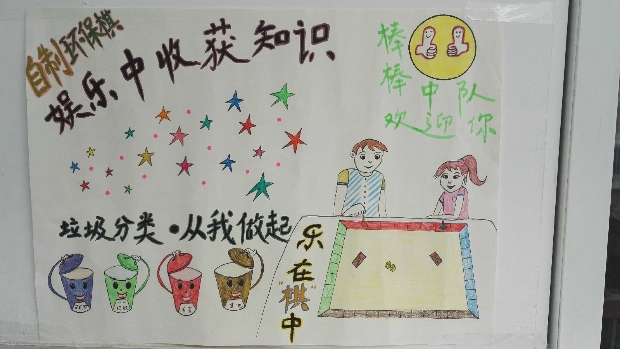 自制环保棋
娱乐中收获知识
棒棒中队
欢迎你
垃圾分类·从我做起
乐在"棋"中